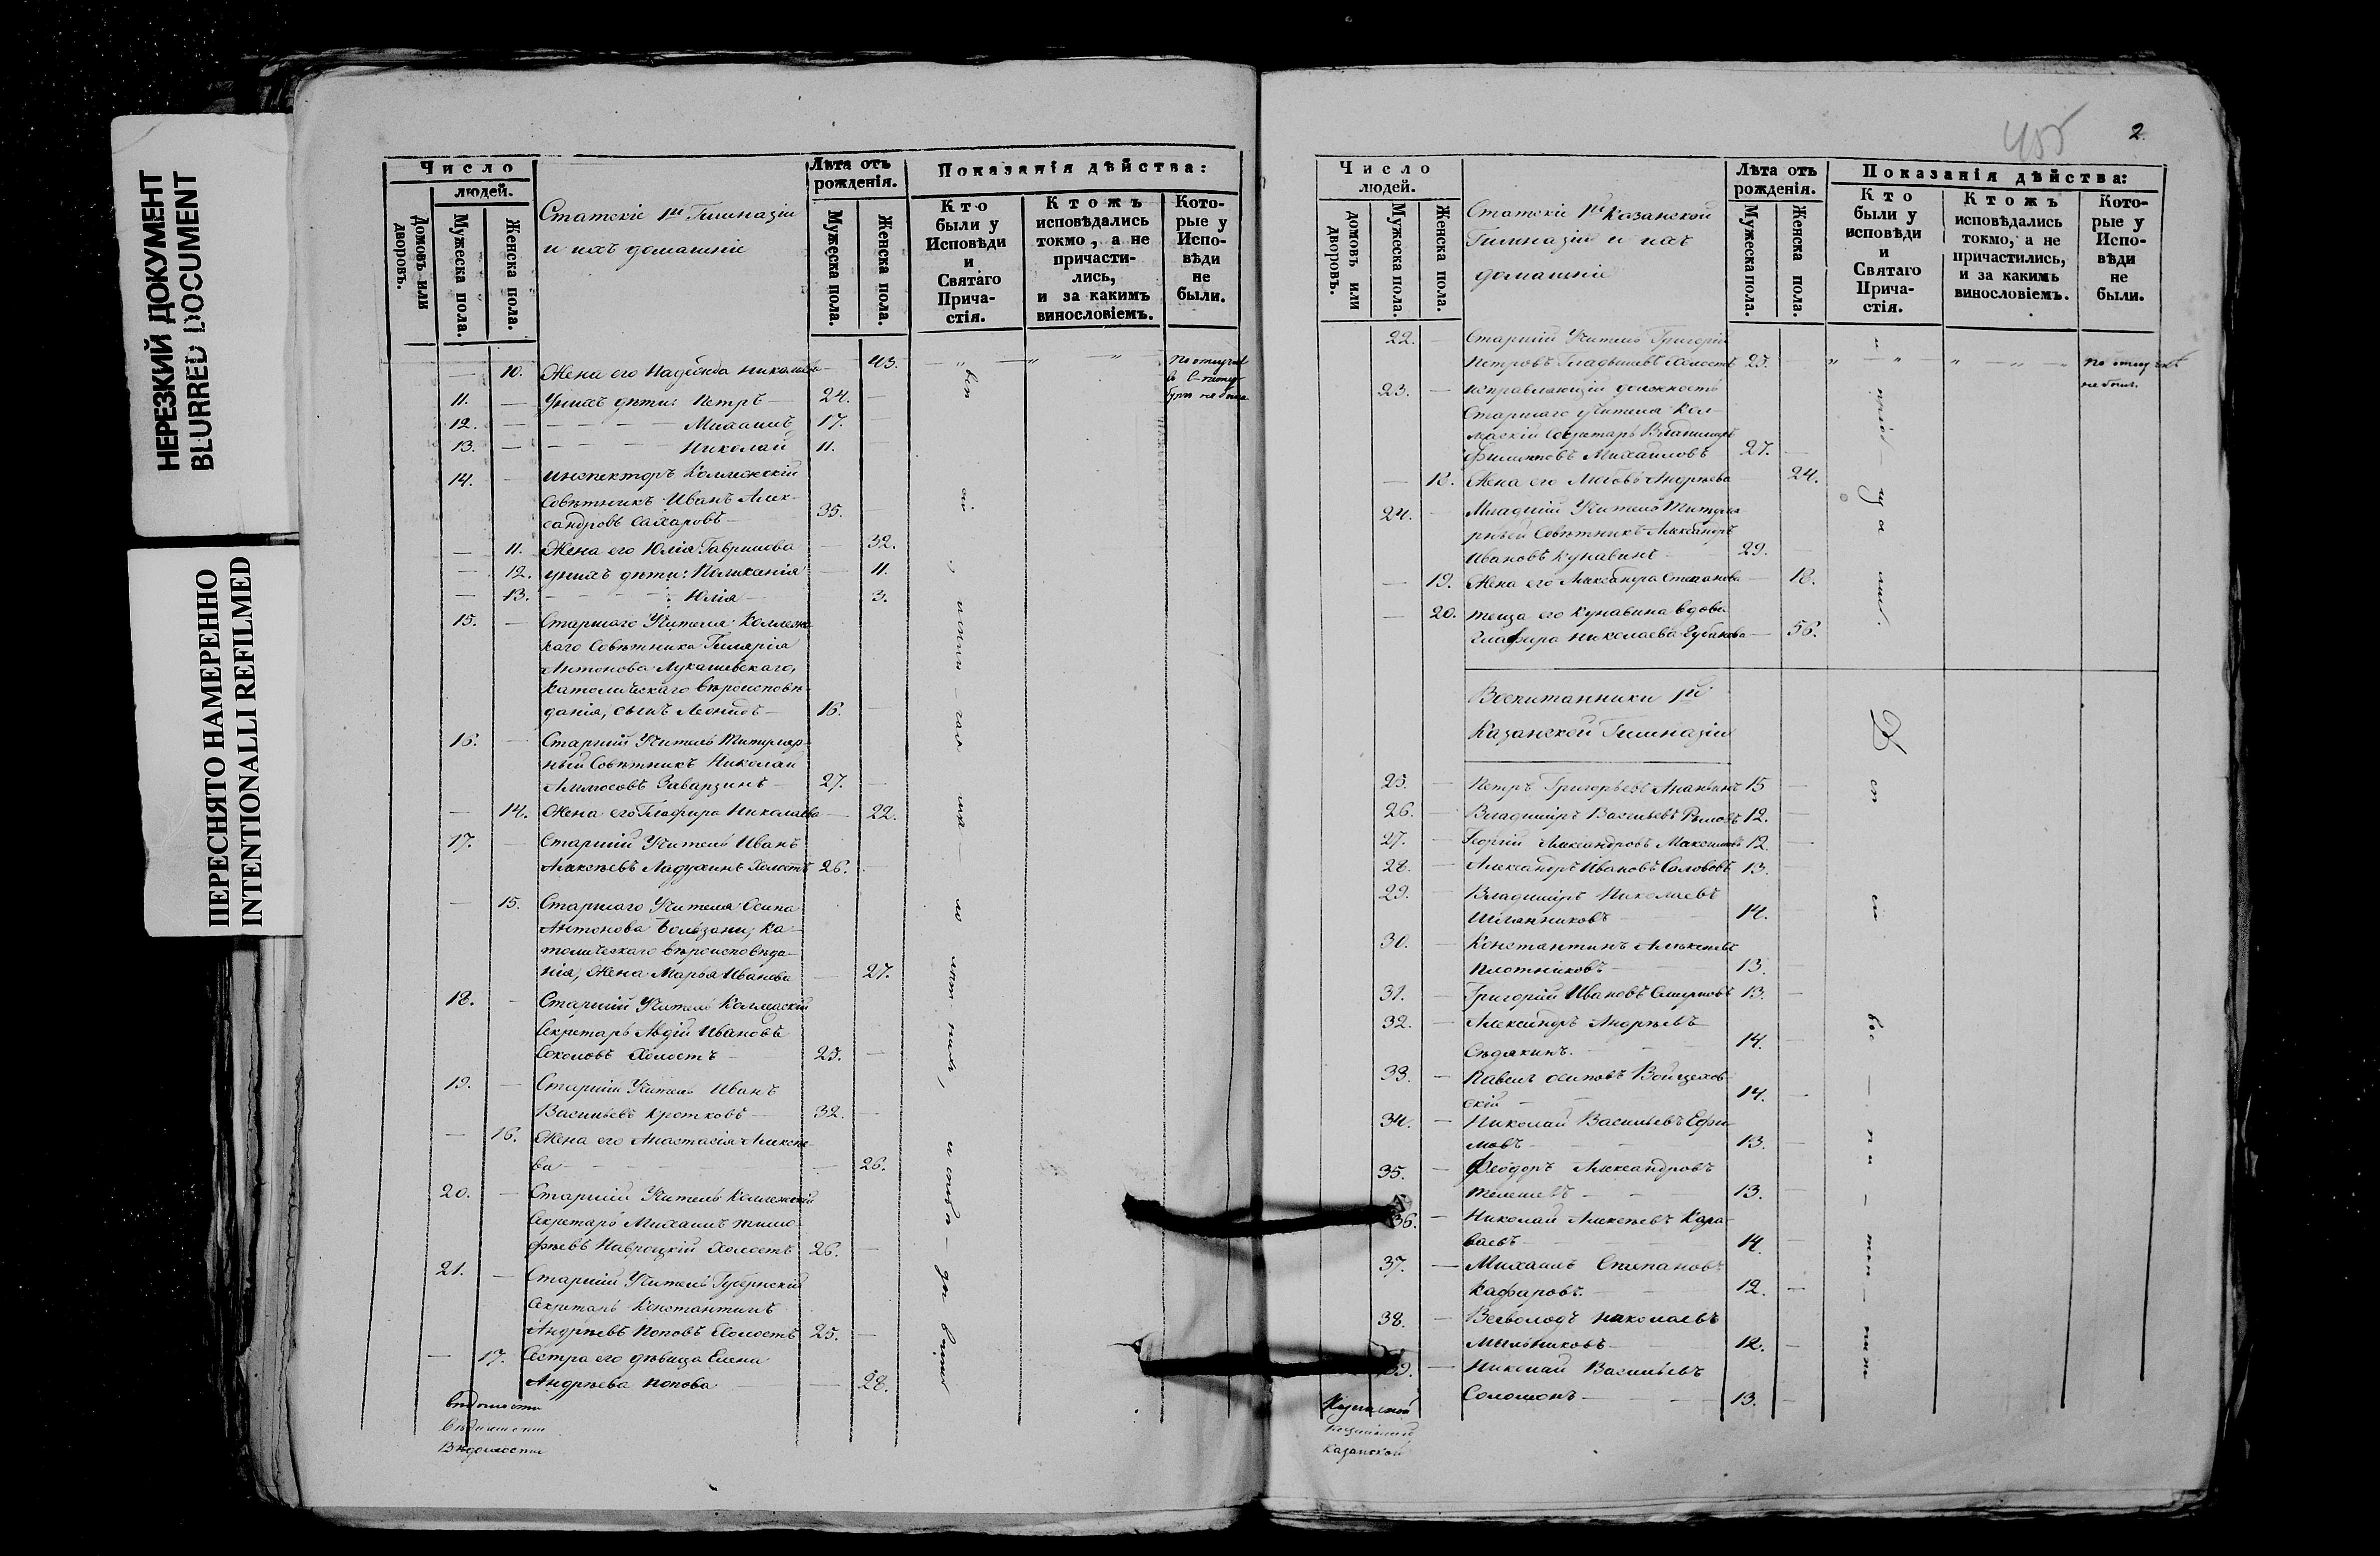 НЕРЕЗКИЙ ДОКУМЕНТ
BLURRED DOCUMENT
ПЕРЕСНЯТО НАМЕРЕННО
INTENTIONALLI REFILMED
Число
людей.
Домовъ или дворовъ.
Мужеска пола.
Женска пола.
Статскіе 1й Гимназіи
и ихъ домашніе
Лѣта отъ рожденія.
Мужеска пола.
Женска пола.
Показанія дѣйства:
Кто были у Исповѣди и Святаго Прича-стія.
Ктожъ исповѣдались токмо, а не причасти-лись, и за какимъ винословіемъ.
Кото-рые у Испо-вѣди не были.
10. Жена его Надежда Николаева — 43.
По отлучкѣ
11. У нихъ дѣти: Петръ — 24.
12. — Михаилъ 17.
13. — Николай 11.
14. Инспекторъ Коллежскій
Совѣтникъ Иванъ Алек-
сандровъ Сахаровъ — 35.
11. Жена его Юлія Гаврилова — 32.
12. у нихъ дѣти: Поликсенія — 11.
13. — Юлія — 3.
15. Старшаго Учителя Коллеж-
каго Совѣтника Гилярія
Антонова Лукашевскаго,
католическаго вѣроисповѣ-
данія, сынъ Леонидъ — 16.
16. Старшій Учитель Титуляр-
ный Совѣтникъ Николай
Заварзинъ — 27.
14. Жена его Глафира Николаева — 22.
17. Старшій Учитель Иванъ
Алексѣевъ Ладухинъ Холостъ 26.
15. Старшаго Учителя Осипа
Антонова Бользани, ка-
толическаго вѣроисповѣда-
нія, Жена Марья Иванова — 27.
18. Старшій Учитель Коллежскій
Секретарь Авдій Ивановъ
Соколовъ Холостъ — 25.
19. Старшій Учитель Иванъ
Васильевъ Кротковъ — 32.
16. Жена его Анастасія Алексѣе-
ва — 26.
20. Старшій Учитель Коллежскій
Секретарь Михаилъ Тимо-
фѣевъ Навроцкій Холостъ 26.
21. Старшій Учитель Губернскій
Секретарь Константинъ
Андреевъ Поповъ Холостъ 25.
17. Сестра его дѣвица Елена
Андреева Попова — 28.
вѣдомости
Вѣдомости
Вѣдомости
455
2.
Число
людей.
домовъ или дворовъ.
Мужеска пола.
Женска пола.
Статскіе 1й Казанской
Гимназіи и ихъ
домашніе
Лѣта отъ рожденія.
Мужеска пола.
Женска пола.
Показанія дѣйства:
Кто были у исповѣди и Святаго Прича-стія.
Ктожъ исповѣдались токмо, а не причастились, и за какимъ винословіемъ.
Кото-рые у Испо-вѣди не были.
22. Старшій Учитель Григорій
Петровъ Гладышевъ Холостъ 25.
по отлучкѣ
не былъ.
23. исправляющій должность
Старшаго Учителя Кол-
лежскій Секретарь Владимиръ
Филипповъ Михайловъ 27.
18. Жена его Любовь Андреева 24.
24. Младшій Учитель Титуля-
рный Совѣтникъ Александръ
Ивановъ Кунавинъ 29.
19. Жена его Александра Степанова — 18.
20. теща его Кунавина вдова
Глафира Николаева Губанова — 56.
Воспитанники 1й
Казанской Гимназіи
25. Петръ Григорьевъ Ананьинъ 15
26. Владиміръ Васильевъ 12.
27. Георгій Александровъ Максимовъ 12.
28. Александръ Ивановъ Соловьевъ 13.
29. Владиміръ Николаевъ
14.
30. Константинъ Алексѣевъ
Плотниковъ — 13.
31. Григорій Ивановъ Смирновъ 13.
32. Александръ Андреевъ
Сѣдякинъ. 14.
33. Павелъ Осиповъ Войцехов-
скій — 14.
34. Николай Васильевъ Ефи-
мовъ — 13.
35. Феодоръ Александровъ
Телешевъ — 13.
36. Николай Алексѣевъ Кара-
ваевъ — 14.
37. Михаилъ Степановъ
Кафаровъ. — 12.
38. Всеволодъ Николаевъ
Мыльниковъ — 12.
39. Николай Васильевъ
Соломонъ — 13.
Казанской
Казанской
Казанской